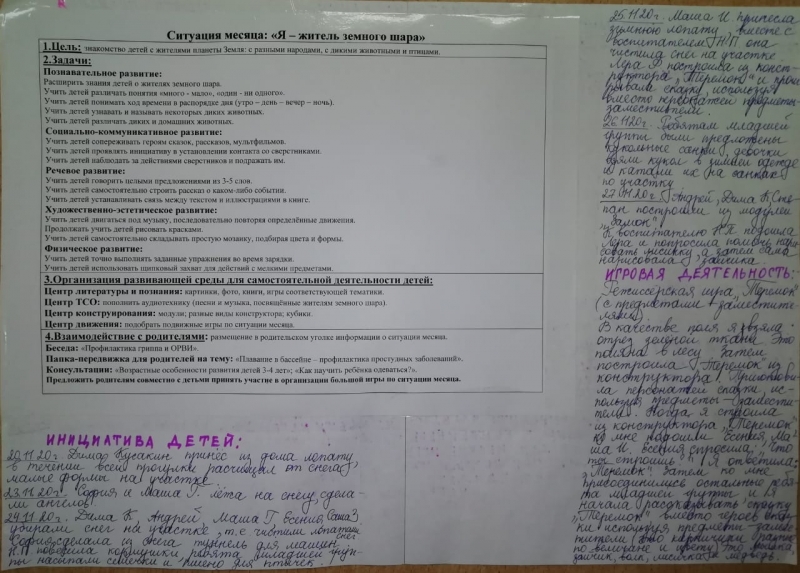 Ситуация месяца: «Я – житель земного шара»
1.Цель: знакомство детей с жителями планеты Земля: с разными народами, с дикими животными и птицами.
2.Задачи:
Познавательное развитие:
Расширить знания детей о жителях земного шара.
Учить детей различать понятия «много - мало», «один - ни одного».
Учить детей понимать ход времени в распорядке дня (утро – день – вечер – ночь).
Учить детей узнавать и называть некоторых диких животных.
Учить детей различать диких и домашних животных.
Социально-коммуникативное развитие:
Учить детей сопереживать героям сказок, рассказов, мультфильмов.
Учить детей проявлять инициативу в установлении контакта со сверстниками.
Учить детей наблюдать за действиями сверстников и подражать им.
Речевое развитие:
Учить детей говорить целыми предложениями из 3-5 слов.
Учить детей самостоятельно строить рассказ о каком-либо событии.
Учить детей устанавливать связь между текстом и иллюстрациями в книге.
Художественно-эстетическое развитие:
Учить детей двигаться под музыку, последовательно повторяя определённые движения.
Продолжать учить детей рисовать красками.
Учить детей самостоятельно складывать простую мозаику, подбирая цвета и формы.
Физическое развитие:
Учить детей точно выполнять заданные упражнения во время зарядки.
Учить детей использовать щипковый захват для действий с мелкими предметами.
3.Организация развивающей среды для самостоятельной деятельности детей:
Центр литературы и познания: картинки, фото, книги, игры соответствующей тематики.
Центр ТСО: пополнить аудиотеку (песни и музыка, посвящённые жителям земного шара).
Центр конструирования: модули; разные виды конструктора; кубики.
Центр движения: подобрать подвижные игры по ситуации месяца.
4.Взаимодействие с родителями: размещение в родительском уголке информации о ситуации месяца.
Беседа: «Профилактика гриппа и ОРВИ».
Папка-передвижка для родителей на тему: «Плавание в бассейне – профилактика простудных заболеваний».
Консультации: «Возрастные особенности развития детей 3-4 лет»; «Как научить ребёнка одеваться?».
Предложить родителям совместно с детьми принять участие в организации большой игры по ситуации месяца.
ИНИЦИАТИВА ДЕТЕЙ:
20.11.20г. Дима Кусакин принёс из дома лопату
в течении всей прогулки расчищал от снега
малые формы на участке
23.11.20г. София и Маша Г. лёжа на снегу, сдела-
ли ангелов
24.11.20г. Дима К, Андрей, Маша Г, Есения, Саша З
убирали снег на участке, т.е. чистили лопатами снег
София сделала из снега туннель для машин
Н.П повесила кормушки, ребята младшей груп-
пы насыпали семечки и пшено для птичек.
25.11.20г. Маша И принесла
зимнюю лопату, вместе с
воспитателем Н.П она
чистила снег на участке
Лера построила из конст-
руктора "Теремок" и прои
грывала сказку, используя
вместо персонажей предметы-
заместители.
26.11.20г. Ребятам младшей
группы были предложены
кукольные санки, девочки
взяли кукол в зимней одежде
и катали их на санках
по участку
27.11.20г. Андрей, Дима К, Сте-
пан построили из модулей
"Замок"
К воспитателю Н.П подошла
Лера и попросила помочь нари-
совать лисичку, а затем сама
нарисовала зайчика
ИГРОВАЯ ДЕЯТЕЛЬНОСТЬ:
Режиссёрская игра "Теремок"
(с предметами заместите-
лями)
В качестве поля я взяла
отрез зеленой ткани. Это
поляна в лесу. Затем
построила "Теремок" из
конструктора.
персонажей сказки, ис-
пользуя предметы-заместите-
тели. Когда я строила
из конструктора "Теремок"
ко мне подошли Есения, Ма-
ша И. Есения спросила, "Что
ты строишь" Я ответила:
"Теремок". Затем ко мне
присоединились остальные ребя
та младшей группы и я
начала рассказывать сказку
"Теремок" вместо героев
используя предметы-замес
тители (это кирпичики
по величине и цвету). Это мышка,
зайчик, волк, лисичка и медведь